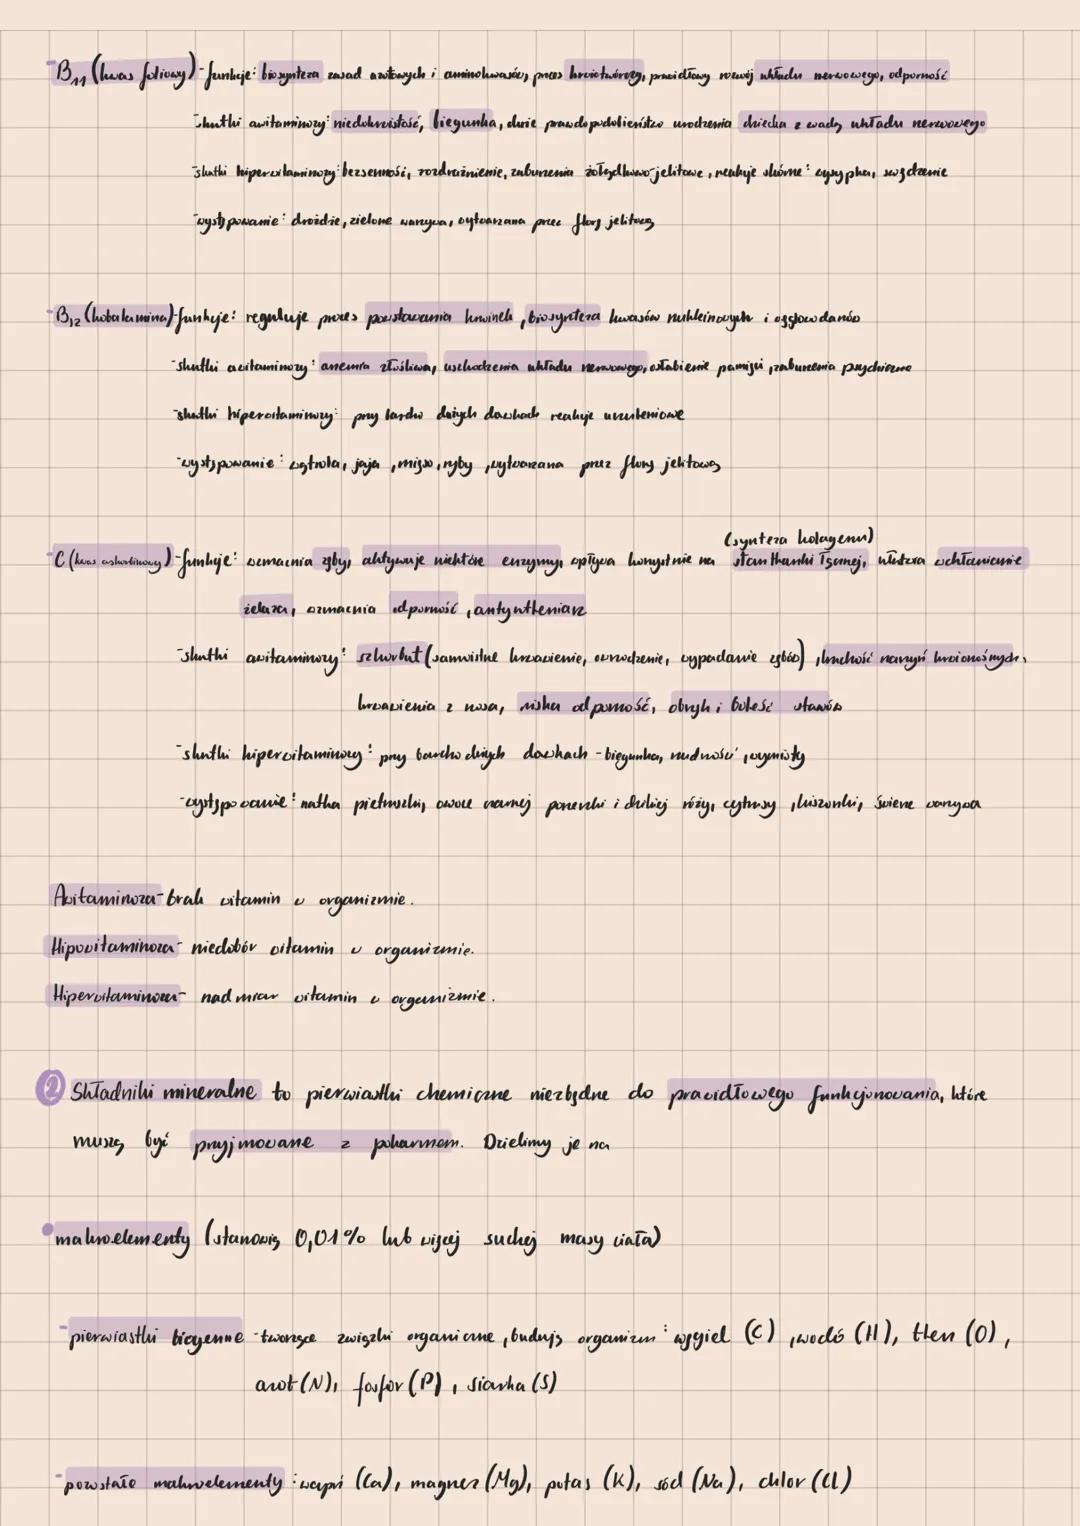 B₁₁ (kwas foliowy) - funkcje: biosynteza zasad azotowych i aminokwasów, proces krwiotwórczy, prawidłowy rozwój układu nerwowego, odporność
-skutki awitaminozy: niedokrwistość, biegunka, duże prawdopodobieństwo urodzenia dziecka z wadą układu nerwowego
-skutki hiperwitaminozy: bezsenność, rozdrażnienie, zaburzenia żołądkowo-jelitowe, reakcje skórne: wysypka, swędzenie
-występowanie: drożdże, zielone warzywa, wytwarzana przez florę jelitową
-B₁₂ (kobalamina) - funkcje: reguluje proces powstawania krwinek, biosynteza kwasów nukleinowych i węglowodanów
-skutki awitaminozy: anemia złośliwa, uszkodzenia układu nerwowego, osłabienie pamięci, zaburzenia psychiczne
-skutki hiperwitaminozy: przy bardzo dużych dawkach reakcje uczuleniowe
-występowanie: wątroba, jaja, mięso, ryby, wytwarzana przez florę jelitową
(synteza kolagenu)
-C (kwas askorbinowy) - funkcje: wzmacnia zęby, aktywuje niektóre enzymy, wpływa korzystnie na stan tkanki łącznej, ułatwia wchłanianie
żelaza, wzmacnia odporność, antyutleniacz
-skutki awitaminozy: szkorbut (samoistne krwawienie, owrzodzenie, wypadanie zębów), kruchość naczyń krwionośnych,
krwawienia z nosa, niska odporność, obrzęk i boleść stawów
-skutki hiperwitaminozy: przy bardzo dużych dawkach - biegunka, nudność, wymioty
-występowanie: natka pietruszki, owoce czarnej porzeczki i dzikiej róży, cytrusy, kiszonki, świeże warzywa
Awitaminoza - brak witamin w organizmie.
Hipowitaminoza - niedobór witamin w organizmie.
Hiperwitaminoza - nadmiar witamin w organizmie.
② Składniki mineralne to pierwiastki chemiczne niezbędne do prawidłowego funkcjonowania, które
muszą być przyjmowane z pokarmem. Dzielimy je na
• makroelementy (stanowią 0,01% lub więcej suchej masy ciała)
-pierwiastki biogenne - tworzące związki organiczne, budują organizm: węgiel (C), wodór (H), tlen (O),
azot (N), fosfor (P), siarka (S)
-pozostałe makroelementy: wapń (Ca), magnez (Mg), potas (K), sód (Na), chlor (Cl)